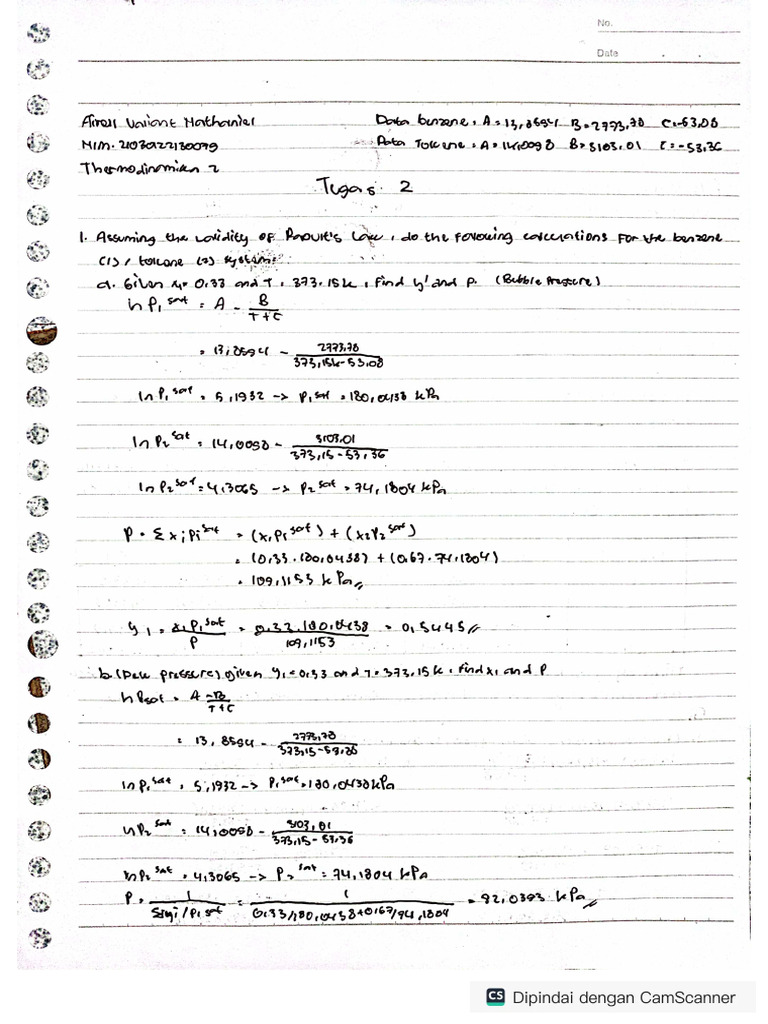 No.
Date
Airell Variant Nathaniel Data benzene : A = 13,8594 B = 2773,78 C = -53.08
NIM. 2103022130079 Data Toluene : A = 14.0098 B = 3103.01 C = -53.36
Thermodinamika 2
Tugas 2
1. Assuming the validity of Raoult's Law, do the following calculations for the benzene
(1) / toluene (2) system:
a. Given x1 = 0.33 and T = 373.15 K, Find y1 and P. (Bubble Pressure)
ln P1 sat = A - B / T + C
= 13,8594 - 2773.78 / 373,15K - 53.08
ln P1 sat = 5,1932 -> P1 sat = 180,0438 kPa
ln P2 sat = 14,0098 - 3103.01 / 373,15 - 53,36
ln P2 sat = 4,3065 -> P2 sat = 74,1804 kPa
P = Σ xi Pi sat = (x1 P1 sat) + (x2 P2 sat)
= (0,33 . 180,0438) + (0,67 . 74,1804)
= 109,1153 kPa //
y1 = x1 P1 sat / P = 0,33 . 180,0438 / 109,1153 = 0,5445 //
b. (Dew pressure) given y1 = 0.33 and T = 373,15 K, find x1 and P
ln Psat = A - B / T + C
= 13,8594 - 2773,78 / 373,15 - 53.08
ln P1 sat = 5,1932 -> P1 sat = 180,0438 kPa
ln P2 sat = 14,0098 - 3103,01 / 373,15 - 53,36
ln P2 sat = 4,3065 -> P2 sat = 74,1804 kPa
P = 1 / Σ yi / Pi sat = 1 / 0,33/180,0438 + 0,67/74,1804 = 92,0393 kPa //
CS Dipindai dengan CamScanner